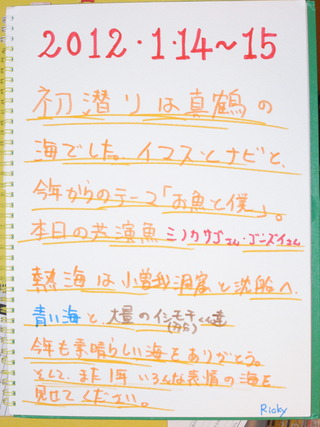 2012・1・14～15
初潜りは真鶴の
海でした。イマスとナビと、
今年からのテーマ「お魚と僕」。
本日の共演魚 ミノカサゴさん・ゴンズイさん
熱海は小曽我洞窟と沈船へ
青い海と、大量のイシモチくん達
(から)
今年も素晴らしい海をありがとう。
そして、また1年 いろんな表情の海を
見せてください。
Ricky